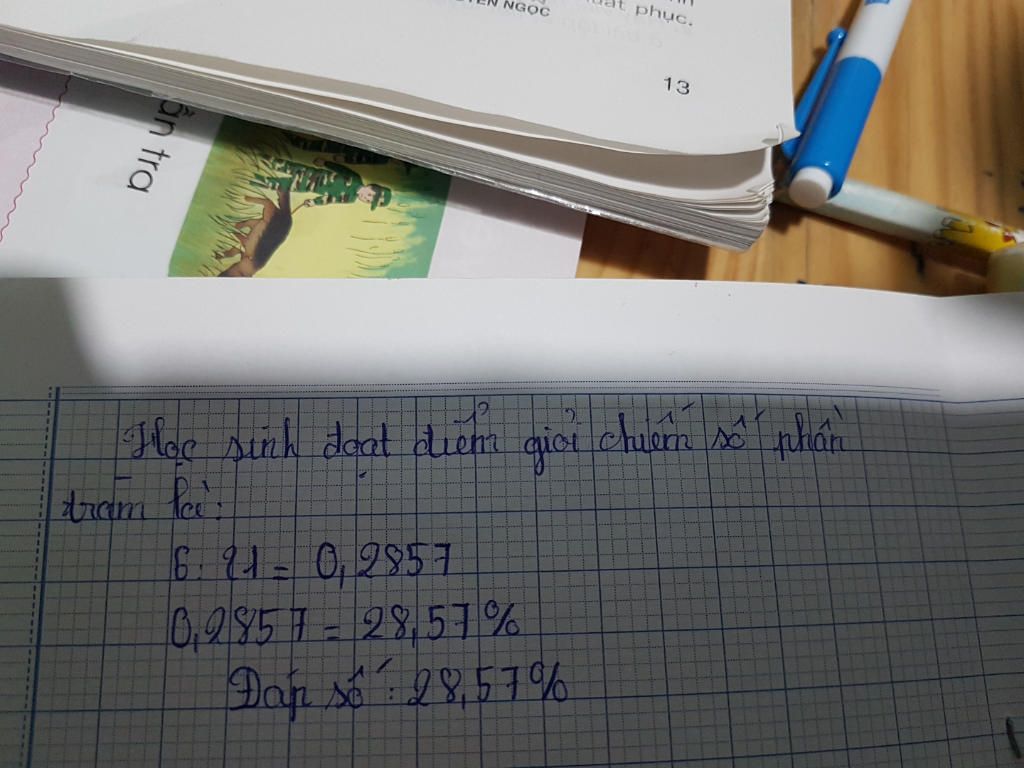 uất phục.
NGỌC
13
ẩn tra
Học sinh đoạt điểm giỏi chiếm số phần
trăm là:
6: 21 = 0,2857
0,2857 = 28,57%
Đáp số: 28,57%